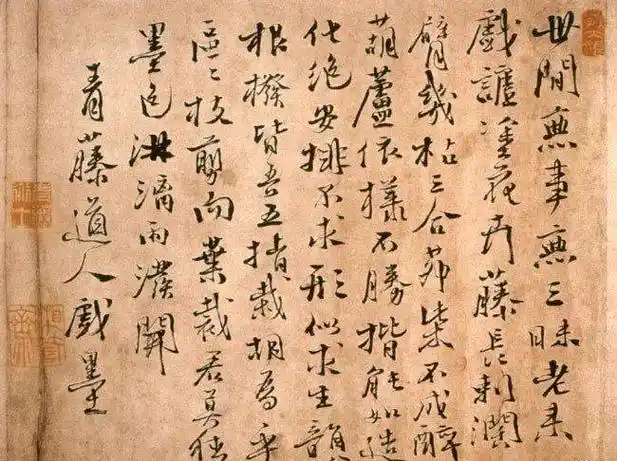 世間無事無三昧老來
戲謔塗花卉藤長刺闊
臂幾枯三合茆柴不成醉
葫蘆依樣不勝揩能如造
化絕安排不求形似求生韻
根撥皆吾五指栽胡為乎
區區枝剪而葉裁君莫猜
墨色淋漓雨潑開
青藤道人戲墨